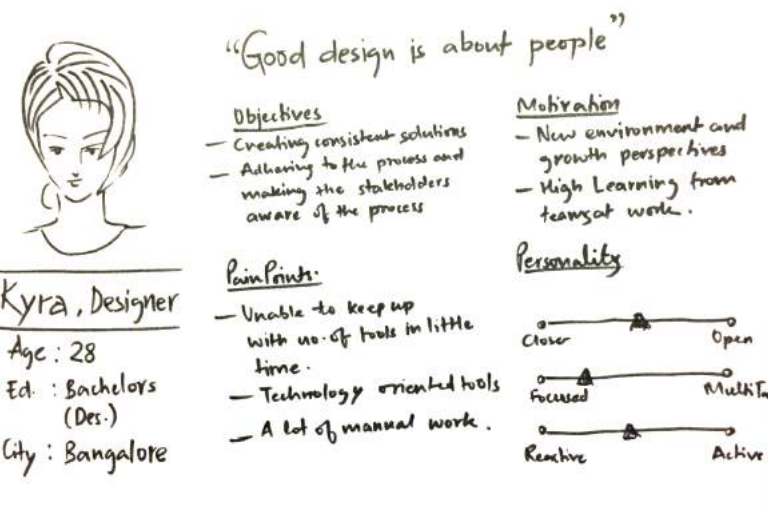 “Good design is about people”
Kyra, Designer
Age : 28
Ed. : Bachelors
(Des.)
City : Bangalore
Objectives
– Creating consistent solutions
– Adhering to the process and
making the stakholders
aware of the process
Pain Points.
– Unable to keep up
with no. of tools in little
time.
– Technology oriented tools
– A lot of manual work.
Motivation
– New environment and
growth perspectives
– High Learning from
teams at work.
Personality
Closer Open
Focused
Reactive Active